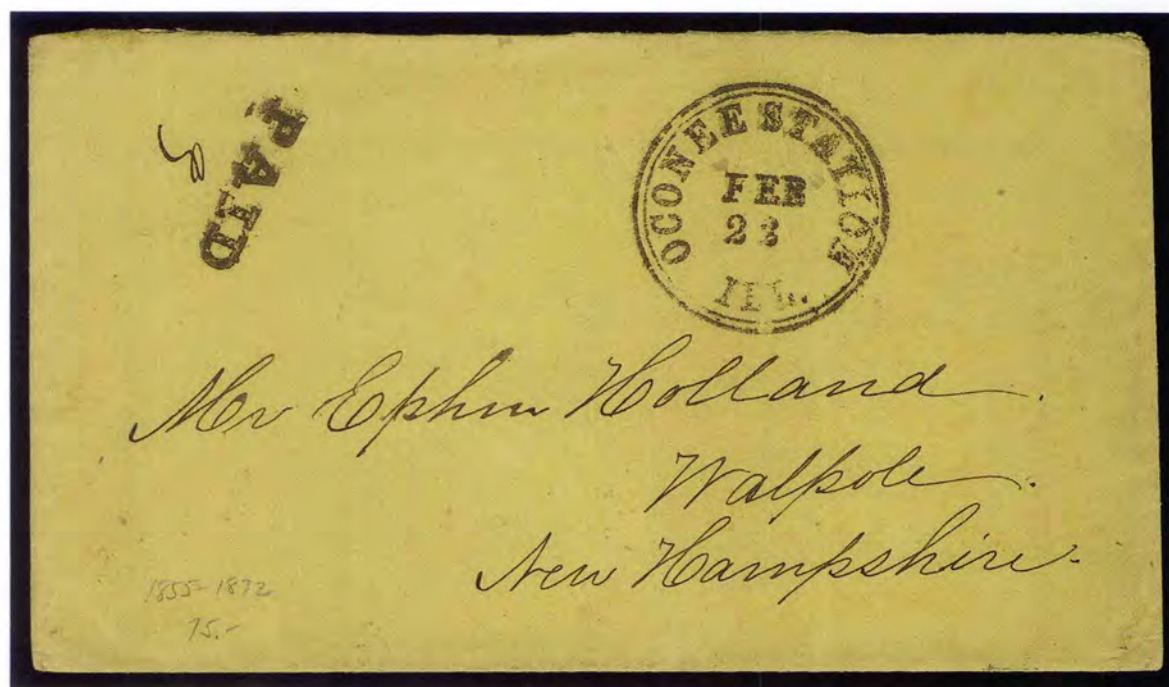 PAID
3
OCONEE STATION
FEB
23
ILL.
Mr Ephm Holland.
Walpole.
New Hampshire.
1855-1872
75.-